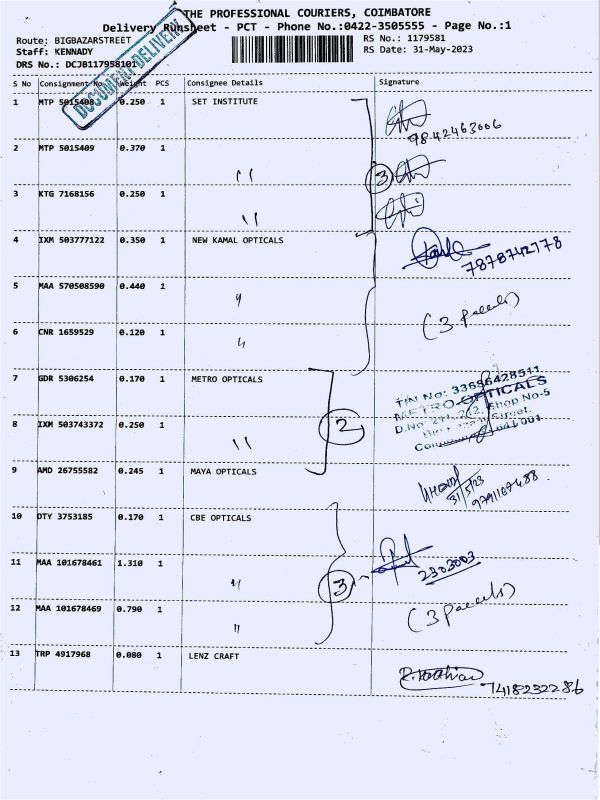 THE PROFESSIONAL COURIERS, COIMBATORE
Delivery Runsheet - PCT - Phone No.:0422-3505555 - Page No.:1
Route: BIGBAZARSTREET
RS No.: 1179581
Staff: KENNADY
RS Date: 31-May-2023
DRS No.: DCJB117958101
DOCUMENT DELIVERY
S No Consignment No. Weight PCS Consignee Details Signature
1 MTP 5015408 0.250 1 SET INSTITUTE
9842463006
2 MTP 5015409 0.370 1 〃
3
3 KTG 7168156 0.250 1 〃
4 IXM 503777122 0.350 1 NEW KAMAL OPTICALS
7878742778
5 MAA 570508590 0.440 1 〃
(3 parcels)
6 CNR 1659529 0.120 1 〃
7 GDR 5306254 0.170 1 METRO OPTICALS
TIN No: 33686428511
METRO OPTICALS
D.No 211-212, Shop No-5
641 001
8 IXM 503743372 0.250 1 〃
2
9 AMD 26755582 0.245 1 MAYA OPTICALS
31/5/23
9791167488
10 DTY 3753185 0.170 1 CBE OPTICALS
11 MAA 101678461 1.310 1 〃
3
2303003
12 MAA 101678469 0.790 1 〃
(3 parcels)
13 TRP 4917968 0.080 1 LENZ CRAFT
7418232286